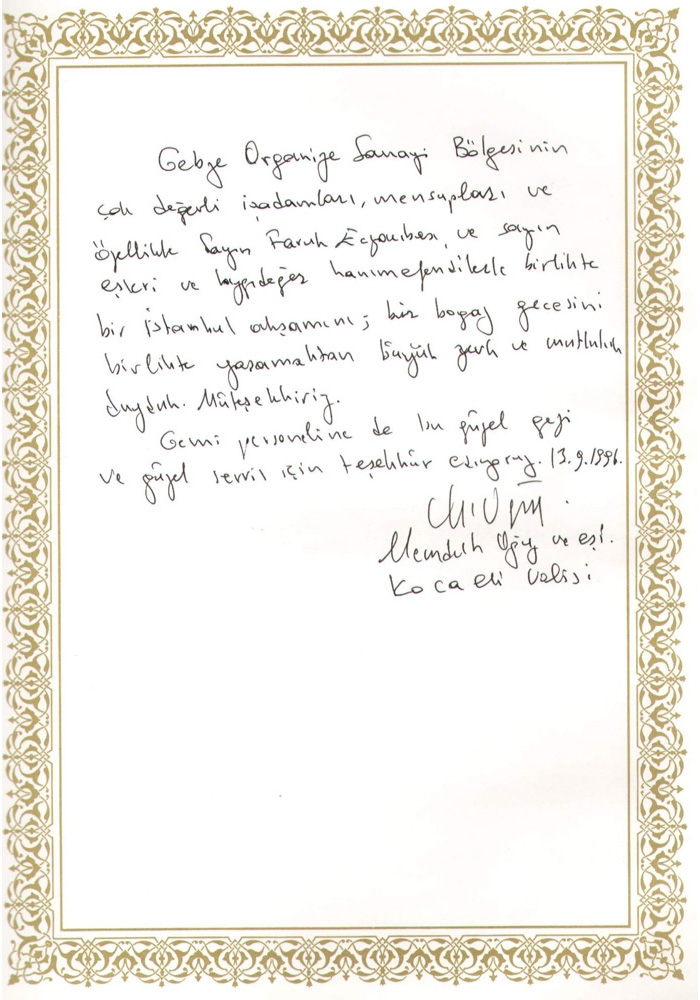 Gebze Organize Sanayi Bölgesinin
çok değerli işadamları, mensupları ve
özellikle Sayın Faruk Eczacıbaşı, ve sayın
eşleri ve saygıdeğer hanımefendilerle birlikte
bir İstanbul akşamını; bir bogaz gecesini
birlikte yaşamaktan büyük zevk ve mutluluk
duyduk. Müteşekkiriz.
Gemi personeline de bu güzel gezi
ve güzel servis için teşekkür ediyoruz. 13.9.1996.
Memduh Oğuz ve eşi.
Kocaeli Valisi